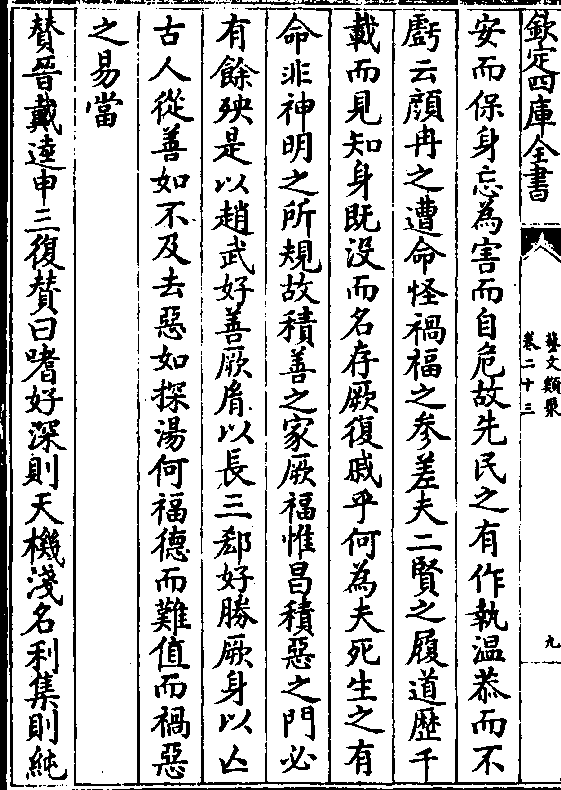 欽定四庫全書
藝文類聚
卷二十三
九
安而保身忘為害而自危故先民之有作執温恭而不
虧云顔冉之遭命怪禍福之參差夫二賢之履道歴千
載而見知身既没而名存厥復戚乎何為夫死生之有
命非神明之所規故積善之家厥福惟昌積惡之門必
有餘殃是以趙武好善厥胄以長三郄好勝厥身以亾
古人從善如不及去惡如探湯何福德而難值而禍惡
之易當
賛晉戴逵申三復賛曰嗜好深則天機淺名利集則純